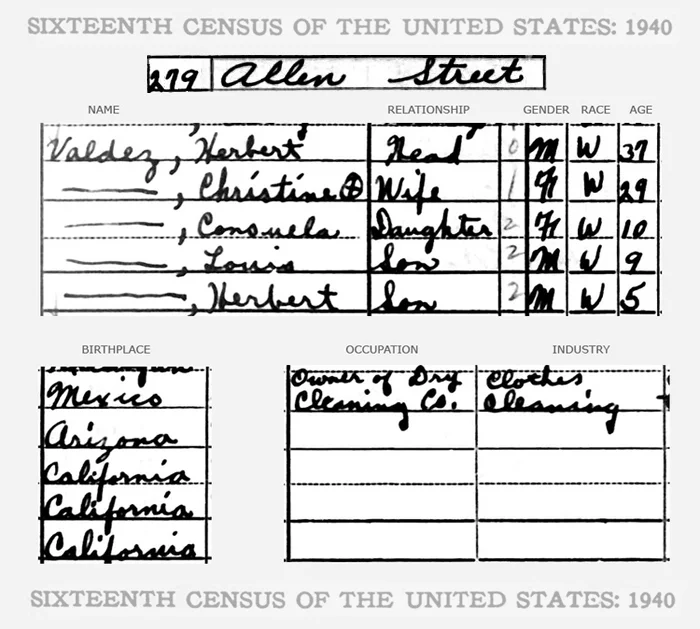 SIXTEENTH CENSUS OF THE UNITED STATES: 1940
279 Allen Street
NAME RELATIONSHIP GENDER RACE AGE
Valdez, Herbert Head 0 M W 37
———, Christine Wife 1 F W 29
———, Consuela Daughter 2 F W 10
———, Louis Son 2 M W 9
———, Herbert Son 2 M W 5
BIRTHPLACE OCCUPATION INDUSTRY
Mexico Owner of Dry Cleaning Co. Clothes Cleaning
Arizona
California
California
California
SIXTEENTH CENSUS OF THE UNITED STATES: 1940